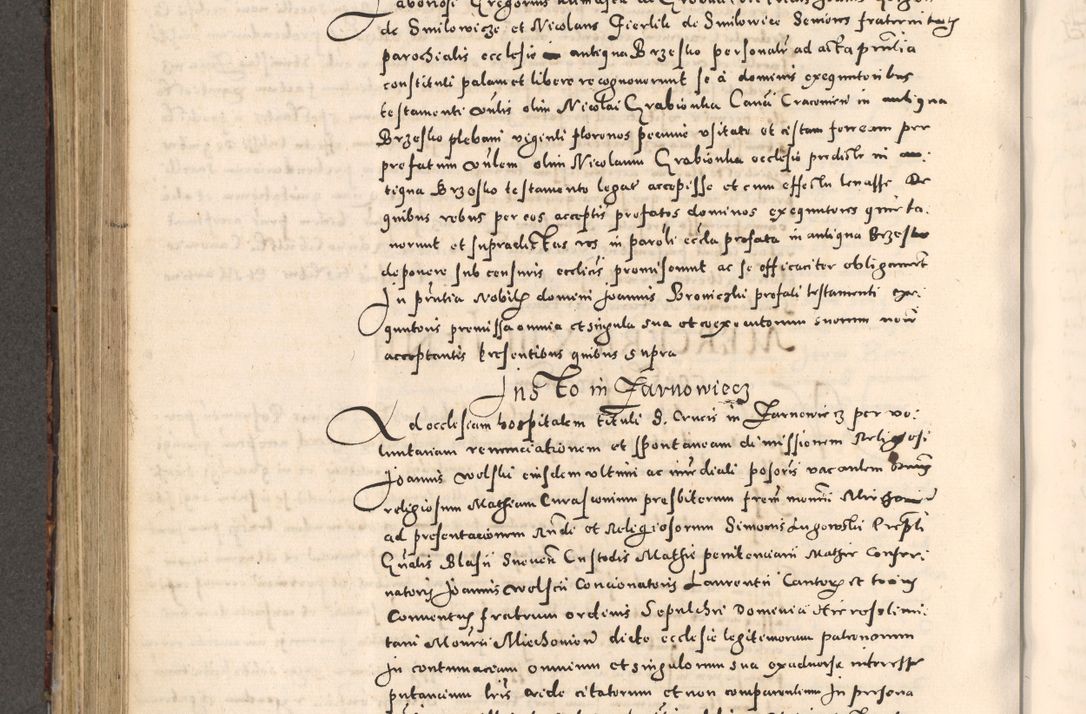 de Smilowicze et Nicolaus Gierlik de Smilowice Seniores fraternitatis
parochialis ecclesie in antiqua Brzesko personalr ad acta prntia
constituti palam et libere recognoverunt se a dominis exequutoribus
testamenti vnlis olim Nicolai Grabionka Canci Cracovien in antiqua
Brzesko plebani viginti florenos pecunie vsitate et cistam ferream per
prefatum vnlem olim Nicolaum Grabionka ecclesie predicte in an:
tiqua Brzesko testamento legat accepisse et cum effectu levasse De
quibus rebus per eos acceptis prefatos dominos exequutores quieta:
verunt et supradictas res in paroli eccla prefata in antiqua Brzesko
deponere sub censuris ecclicis promiserunt ac se efficaciter obligaverunt
In prntia Nobilis domini Joannis Broniczki prefati testamenti exe:
quutoris premissa omnia et singula sua et coexecutorum suorum noie
acceptantis Presentibus quibus supra
Instto in Zarnowiecz
Ad ecclesiam hospitalem tituli S. Crucis in Zarnowiecz per vo:
luntariam renunciationem et spontaneam dimissionem Religiosi
Joannis Wolski eiusdem vltimi ac immediati possoris vacantem
religiosum Mathiam Curasconium presbiterum frem
ad presentationem Rndi et Religiosorum Simonis Lugowski Prepti
Gnalis Blasii Custodis Mathie penitenciarii Mathie Conser:
natoris Joannis Wolscii Concionatoris Laurentii Cantoris et totius
Conventus fratrum ordinis Sepulchri Dominici Hierosolimi:
tani Monrii Miechovien dicte ecclesie legitimorum patronorum
In contumaciam omnium et singulorum sua exadverso interesse
putancium lris citatorum et non comparentium In persona